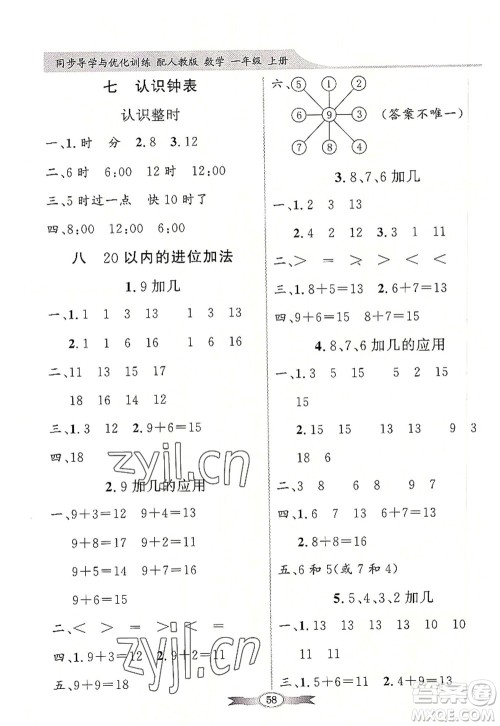 同步导学与优化训练 配人教版 数学 一年级 上册
七 认识钟表
认识整时
一、1.时 分 2.8 3.12
二、6时 6:00 12时 12:00
三、5时过一点 快10时了
四、8:00 9:00 10:00
八 20以内的进位加法
1.9加几
一、1.1 3 13 1 3 13
2.1 1 1 6 16 16
二、18 15 16 17
三、1.3 12 2.9+6=15
四、18
2.9加几的应用
一、9+3=12 9+4=13
9+8=17 9+2=11
9+6=15 9+5=14
9+7=16 9+9=18
二、< > > =
三、1.9+4=13 2.9+9=18
58
六、
⑤ ① ②
④ ⑨ ⑥
⑧ ⑦ ③
(答案不唯一)
3.8、7、6加几
一、1.2 3 13
2.4 1 11 3.1 1 11
二、> > = >
三、1.8+5=13 2.6+5=11
四、8+7=15
4.8、7、6加几的应用
一、1.5 15 15
15
2.
3.8 18 18
二、13 12 15 14 16
三、< > = >
四、1.8+8=16 2.9+6=15
五、6和5(或7和4)
5.5、4、3、2加几
一、1.13 13 13